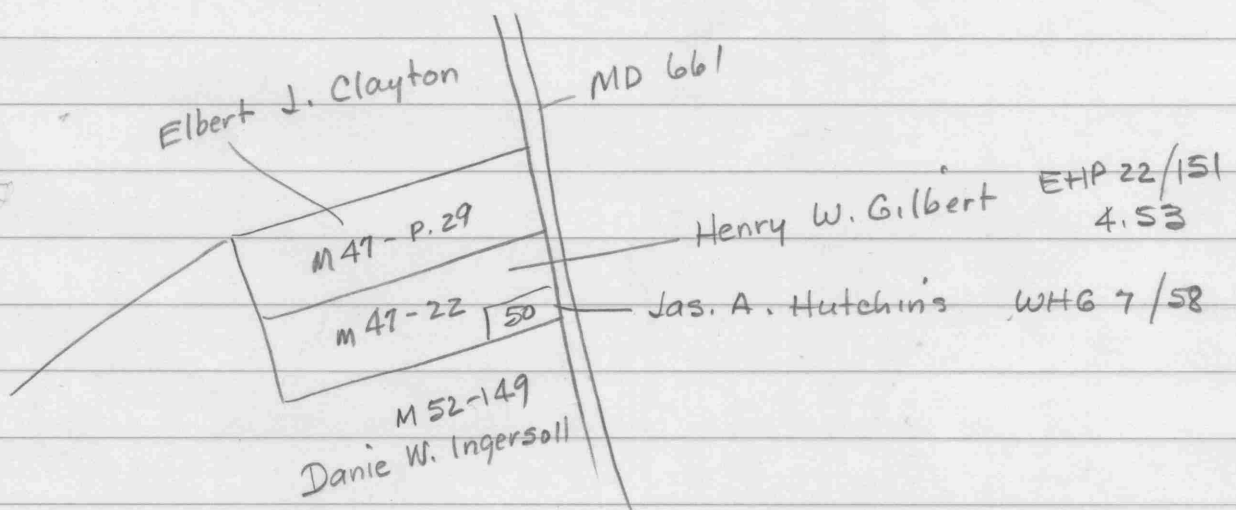 Elbert J. Clayton
MD 661
M 47 - P. 29
Henry W. Gilbert EHP 22/151
4.53
M 47-22
50
Jas. A. Hutchins WHG 7/58
M 52-149
Danie W. Ingersoll